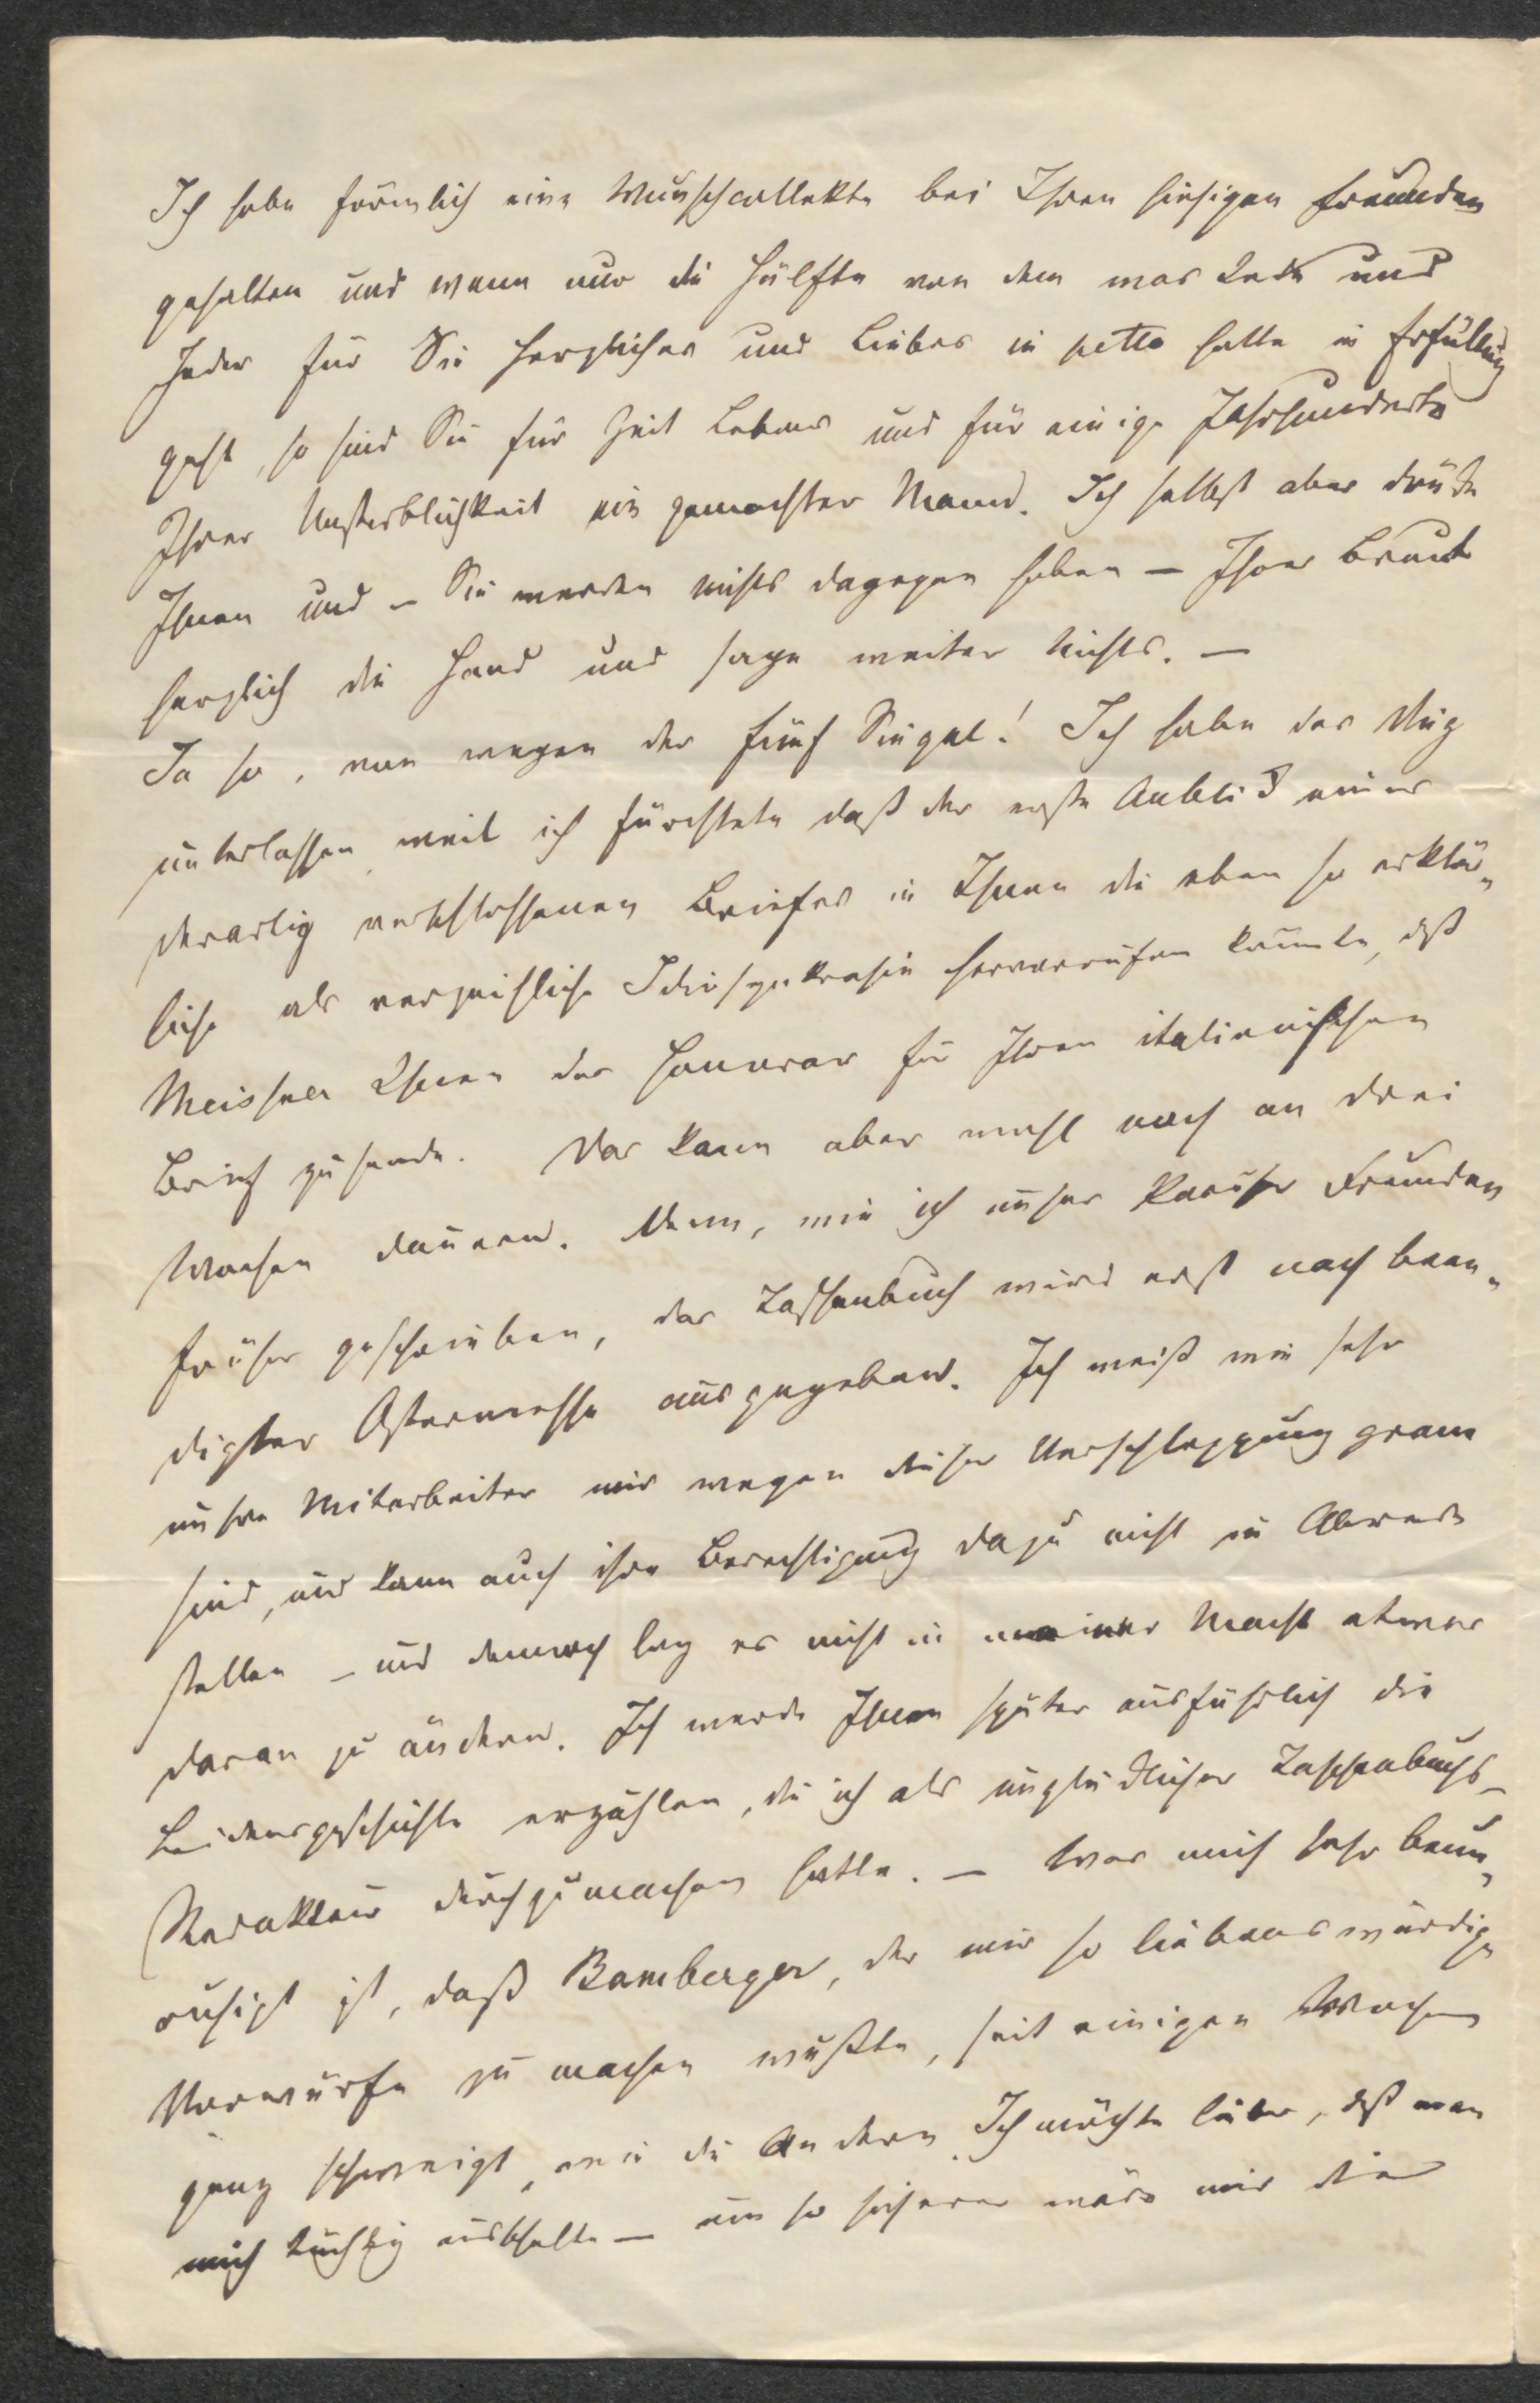 Ich habe förmlich eine Wunschcollekte bei Ihren hiesigen Freunden
gehalten und wenn nur die Hälfte von dem was Jede und
Jeder für Sie Herzliches und Liebes in petto hatte in Erfüllung
geht, so sind Sie für Zeit Lebens und für einige Jahrhunderte
Ihrer Unsterblichkeit ein gemachter Mann. Ich selbst aber drücke
Ihnen und – Sie werden nichts dagegen haben – Ihrer Braut
herzlich die Hand und sage weiter nichts. –
Ja so, von wegen der fünf Siegel! Ich habe das
unterlassen, weil ich fürchtete daß der erste Anblick eines
derartig verschlossenen Briefes in Ihnen die eben so erklär-
liche als verzeihliche Idiosynkrasie hervorrufen könnte, daß
Meissner Ihnen das Honorar für Ihren italienischen
Brief zusende. Das kann aber wohl noch an drei
Wochen dauern. Denn, wie ich unser Pariser Freunden
früher geschrieben, das Taschenbuch wird erst nach been-
digter Ostermesse ausgegeben. Ich weiß wie sehr
unsre Mitarbeiter mir wegen dieser Verschleppung gram
sind, und kann auch ihre Berechtigung dazu nicht in Abrede
stellen – und dennoch lag es nicht in meiner Macht etwas
daran zu ändern. Ich werde Ihnen später ausführlich die
Leidensgeschichte erzählen, die ich als unglücklicher Taschenbuchs-
Redakteur durchzumachen hatte. – Was mich sehr beun-
ruhigt ist, daß Bamberger, der mir so liebenswürdige
Vorwürfe zu machen wußte, seit einigen Wochen
ganz schweigt, wie die Andern. Ich möchte lieber, daß man
mich tüchtig ausschelte – um so sicherer wäre mir die